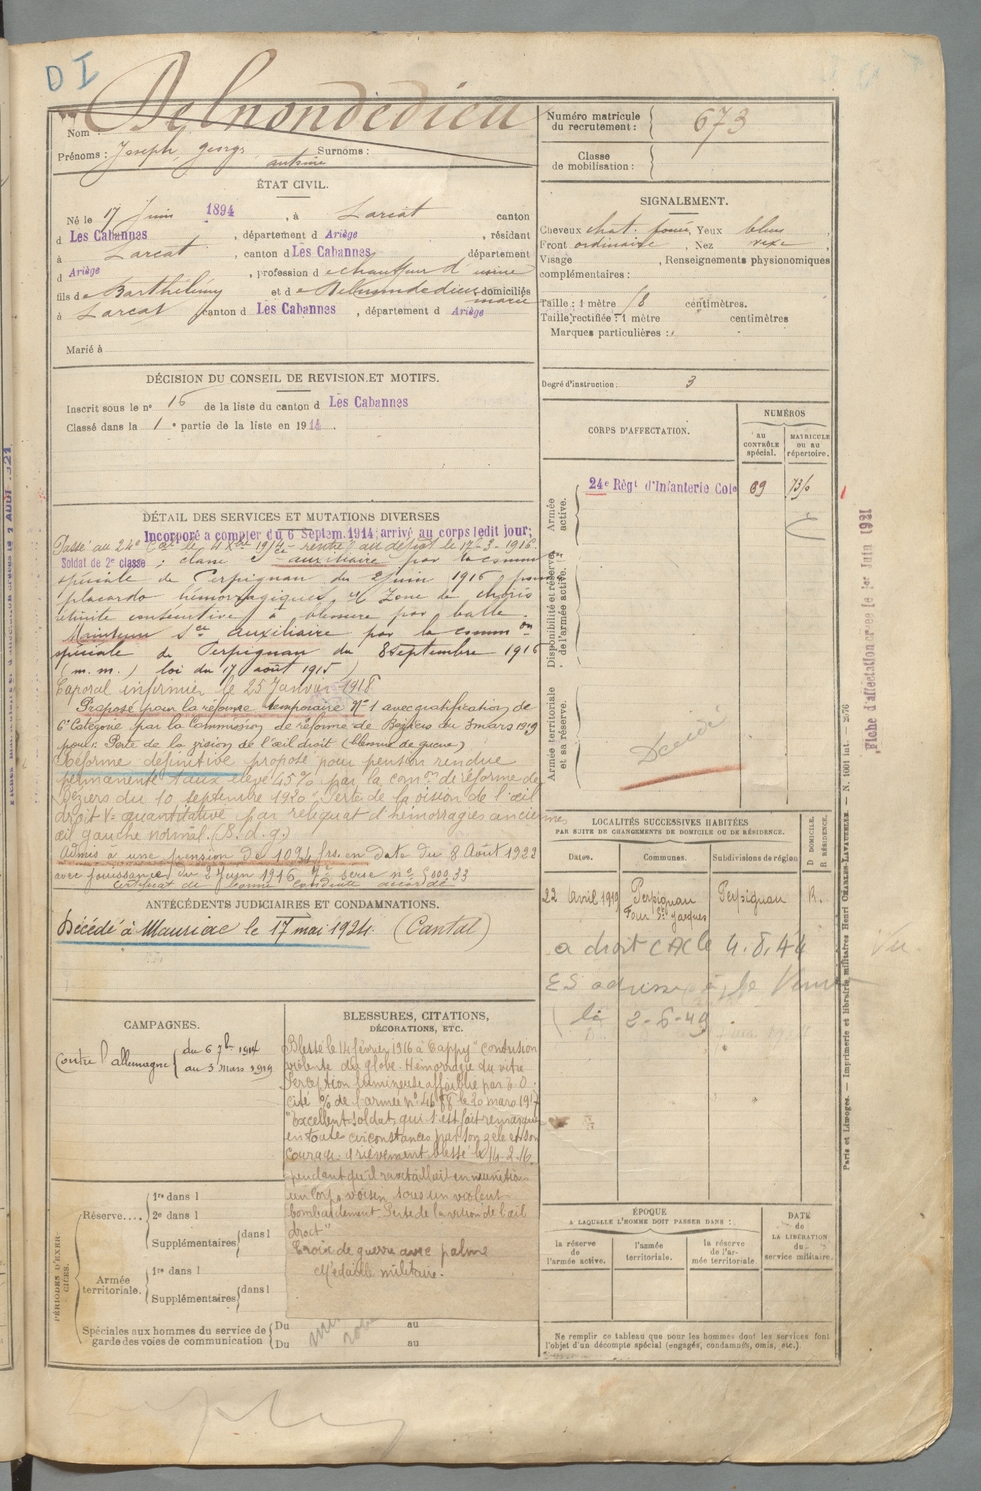 DI
Nom : Delnondedieu
Prénoms : Joseph, georges antoine Surnoms :
Numéro matricule du recrutement : 673
Classe de mobilisation :
ÉTAT CIVIL.
Né le 17 Juin 1894, à Larcat canton
d Les Cabannes, département d Ariège, résidant
à Larcat, canton d Les Cabannes département
d Ariège, profession d e chauffeur d'usine
fils de Barthélémy et de Delnondedieu marie domiciliés
à Larcat canton d Les Cabannes, département d Ariège
Marié à
SIGNALEMENT.
Cheveux chat. foncé, Yeux bleus
Front ordinaire, Nez vexe
Visage , Renseignements physionomiques
complémentaires :
Taille : 1 mètre 78 centimètres.
Taille rectifiée : 1 mètre centimètres
Marques particulières :
Degré d'instruction : 3
DÉCISION DU CONSEIL DE REVISION ET MOTIFS.
Inscrit sous le n° 16 de la liste du canton d Les Cabannes
Classé dans la 1 e partie de la liste en 1914.
CORPS D'AFFECTATION.
NUMÉROS
AU CONTRÔLE spécial.
MATRICULE OU AU répertoire.
Armée active.
24e Régt d'Infanterie Cole 69
Disponibilité et réserve de l'armée active.
Armée territoriale et sa réserve.
Décédé
DÉTAIL DES SERVICES ET MUTATIONS DIVERSES
Incorporé a compter du 6 Septem. 1914; arrivé au corps ledit jour;
Soldat de 2e classe
Passé au 24e Cal le 4 Xbre 1914 rentré au dépôt le 17-3-1916.
; classé Sce auxiliaire par la comm
spéciale de Perpignan du 2 Juin 1916 pour
placards hémorragiques, Zone de choris
rétinite consécutive à blessure par balle.
Maintenu sce auxiliaire par la common
spéciale de Perpignan du 8 septembre 1916
(m. m.) loi du 17 août 1915)
Caporal infirmier le 25 Janvier 1918
Proposé pour la réforme temporaire N° 1 avec gratification de
6e Catégorie par la Commission de réforme de Beziers du 3 mars 1919
pour: Perte de la vision de l'œil droit (blessure de guerre)
Réforme définitive proposé pour pension rendue
permanente taux élevé 45% par la comon de réforme de
Béziers du 10 septembre 1920 Perte de la vision de l'œil
droit V= quantitative par reliquat d'hémorragies anciennes
œil gauche normal. (B.d.g.)
Admis à une pension de 1094 frs. en date du 8 Août 1922
avec jouissance du 3 Juin 1916
Certificat de bonne conduite accordé
LOCALITÉS SUCCESSIVES HABITÉES
PAR SUITE DE CHANGEMENTS DE DOMICILE OU DE RÉSIDENCE.
Dates. Communes. Subdivisions de région D DOMICILE. R RÉSIDENCE.
22 Avril 1919 Perpignan Perpignan R.
Four St Jacques
a droit CAC le 4.8.44
2-6-49
Vu
ANTÉCÉDENTS JUDICIAIRES ET CONDAMNATIONS.
Décédé à Mauriac le 17 mai 1924 (Cantal)
CAMPAGNES.
Contre l'allemagne { du 6 7bre 1914
au 3 mars 1919
BLESSURES, CITATIONS, DÉCORATIONS, ETC.
Blessé le 14 février 1916 à Cappy "contusion
violente du globe. Hémorragie du vitré
Perception lumineuse affaiblie par E.O.
cité o/o de l'armée le 20 mars 1917
"Excellent soldat, qui s'est fait remarquer
en toutes circonstances par son zèle et son
courage. Grièvement blessé le 14.2.16.
pendant qu'il ravitaillait en munitions
un corps voisin sous un violent
bombardement. Perte de la vision de l'œil
droit"
Croix de guerre avec palme
Médaille militaire.
PÉRIODES D'EXERCICES.
Réserve.... { 1re dans l
2e dans l
Supplémentaires { dans l
Armée territoriale. { 1re dans l
Supplémentaires { dans l
Spéciales aux hommes du service de garde des voies de communication { Du au
Du au
ÉPOQUE
A LAQUELLE L'HOMME DOIT PASSER DANS :
la réserve de l'armée active.
l'armée territoriale.
la réserve de l'armée territoriale
DATE de LA LIBÉRATION du service militaire.
Ne remplir ce tableau que pour les hommes dont les services font
l'objet d'un décompte spécial (engagés, condamnés, omis, etc.).
Paris et Limoges. — Imprimerie et librairie militaires Henri CHARLES-LAVAUZELLE. — N. 1001 int. —
Fiche d'affectation créée le 1er Juin 1921